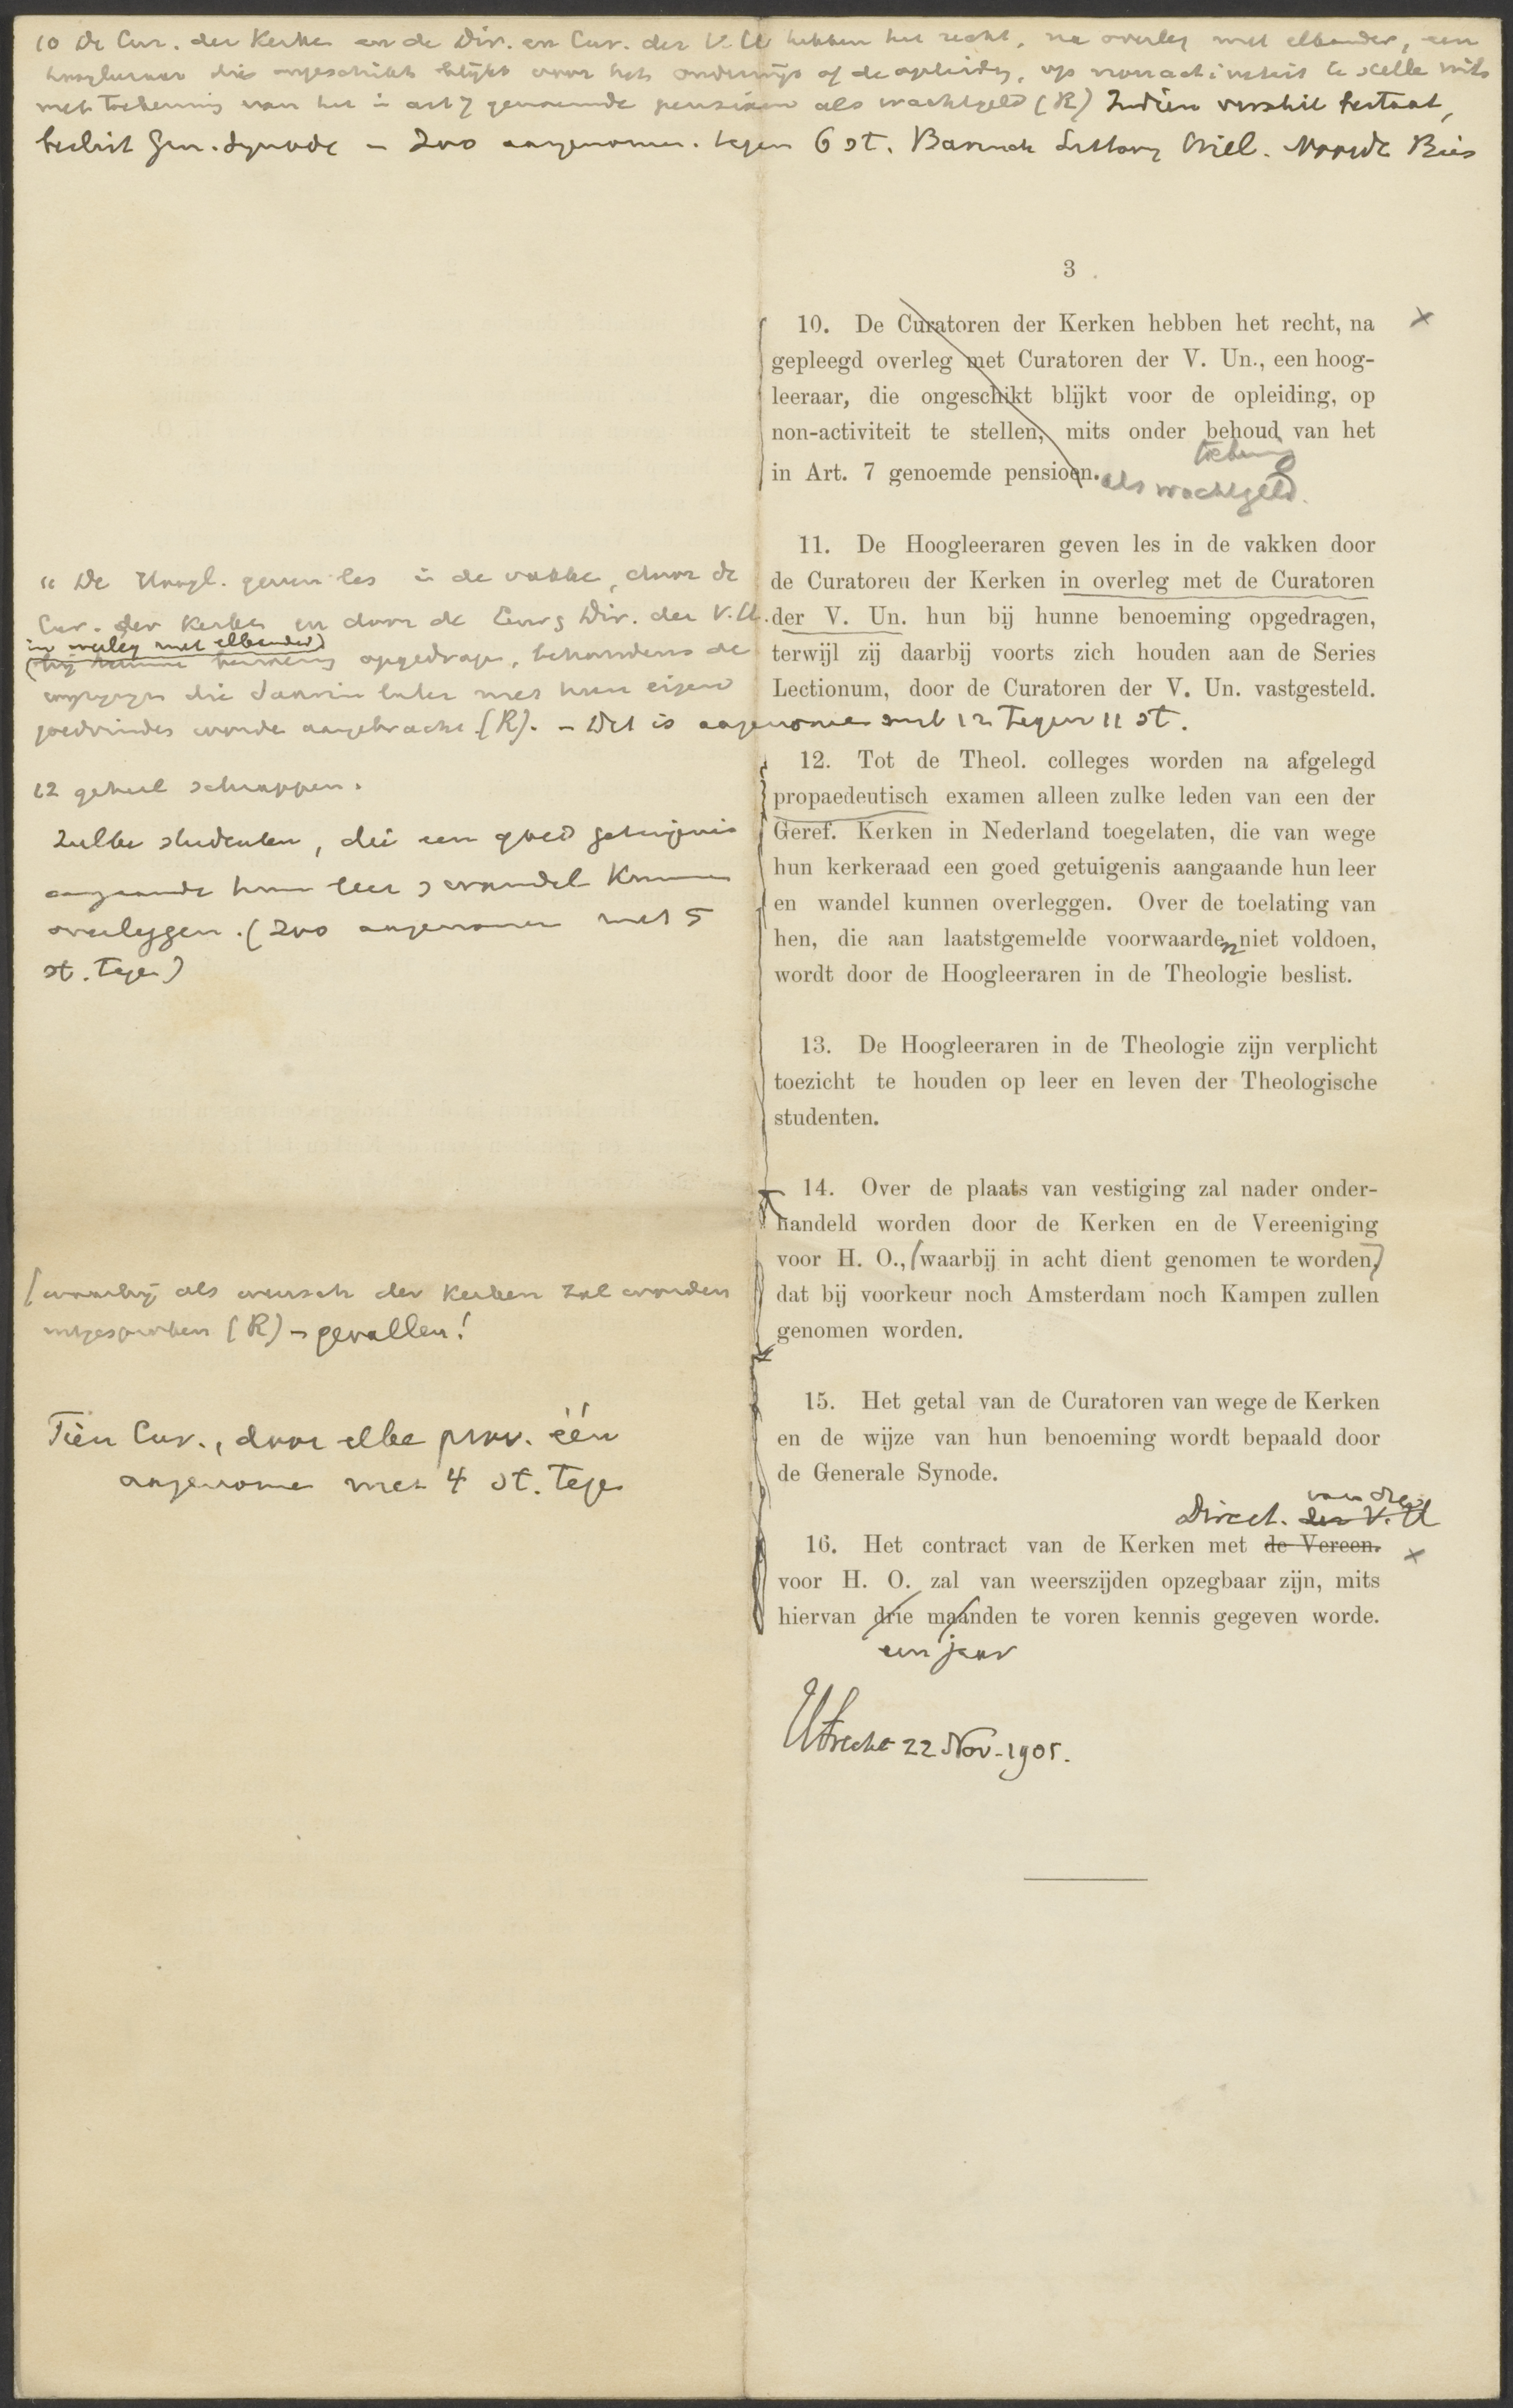 10 De Cur. der Kerken en de Dir. en Cur. der V.U hebben het recht, na overleg met elkander, een
hoogleeraar die ongeschikt blijkt voor het onderwijs of de opleiding, op nonactiviteit te stelle mits
met toekenning van het in art 7 genoemde pensioen als wachtgeld (R) Indien verschil bestaat,
beslist Gen. Synode – Zoo aangenomen. tegen 6 st. Bavinck Wiel. Bies
3
10. De Curatoren der Kerken hebben het recht, na
gepleegd overleg met Curatoren der V. Un., een hoog-
leeraar, die ongeschikt blijkt voor de opleiding, op
non-activiteit te stellen, mits onder behoud van het
toekenning
in Art. 7 genoemde pensioen. als wachtgeld.
11. De Hoogleeraren geven les in de vakken door
de Curatoreu der Kerken in overleg met de Curatoren
der V. Un. hun bij hunne benoeming opgedragen,
terwijl zij daarbij voorts zich houden aan de Series
Lectionum, door de Curatoren der V. Un. vastgesteld.
11 De Hoogl. geven les in de vakke, door de
Cur. der Kerken en door de Cur & Dir. der V.U.
in overleg met elkander)
(bij hunne benoeming opgedrage, behoudens de
die daarin later met hun eigen
goedvinden worde aangebracht (R). – Dit is aangenomen met 12 tegen 11 st.
12. Tot de Theol. colleges worden na afgelegd
propaedeutisch examen alleen zulke leden van een der
Geref. Kerken in Nederland toegelaten, die van wege
hun kerkeraad een goed getuigenis aangaande hun leer
en wandel kunnen overleggen. Over de toelating van
hen, die aan laatstgemelde voorwaarden niet voldoen,
wordt door de Hoogleeraren in de Theologie beslist.
12 geheel schrappen.
Zulke studenten, die een goed getuigenis
aangaande hun leer & wandel kunnen
overleggen. (Zoo aangenomen met 5
st. tege)
13. De Hoogleeraren in de Theologie zijn verplicht
toezicht te houden op leer en leven der Theologische
studenten.
14. Over de plaats van vestiging zal nader onder-
handeld worden door de Kerken en de Vereeniging
voor H. O., (waarbij in acht dient genomen te worden,)
dat bij voorkeur noch Amsterdam noch Kampen zullen
genomen worden.
(waarbij als wensch der Kerken zal worden
uitgesproken (R) – gevallen!
15. Het getal van de Curatoren van wege de Kerken
en de wijze van hun benoeming wordt bepaald door
de Generale Synode.
Tien Cur., door elke prov. één
aangenome met 4 st. tege
van de
Direct. der V.U
16. Het contract van de Kerken met de Vereen.
voor H. O. zal van weerszijden opzegbaar zijn, mits
hiervan drie maanden te voren kennis gegeven worde.
een jaar
Utrecht 22 Nov. 1905.